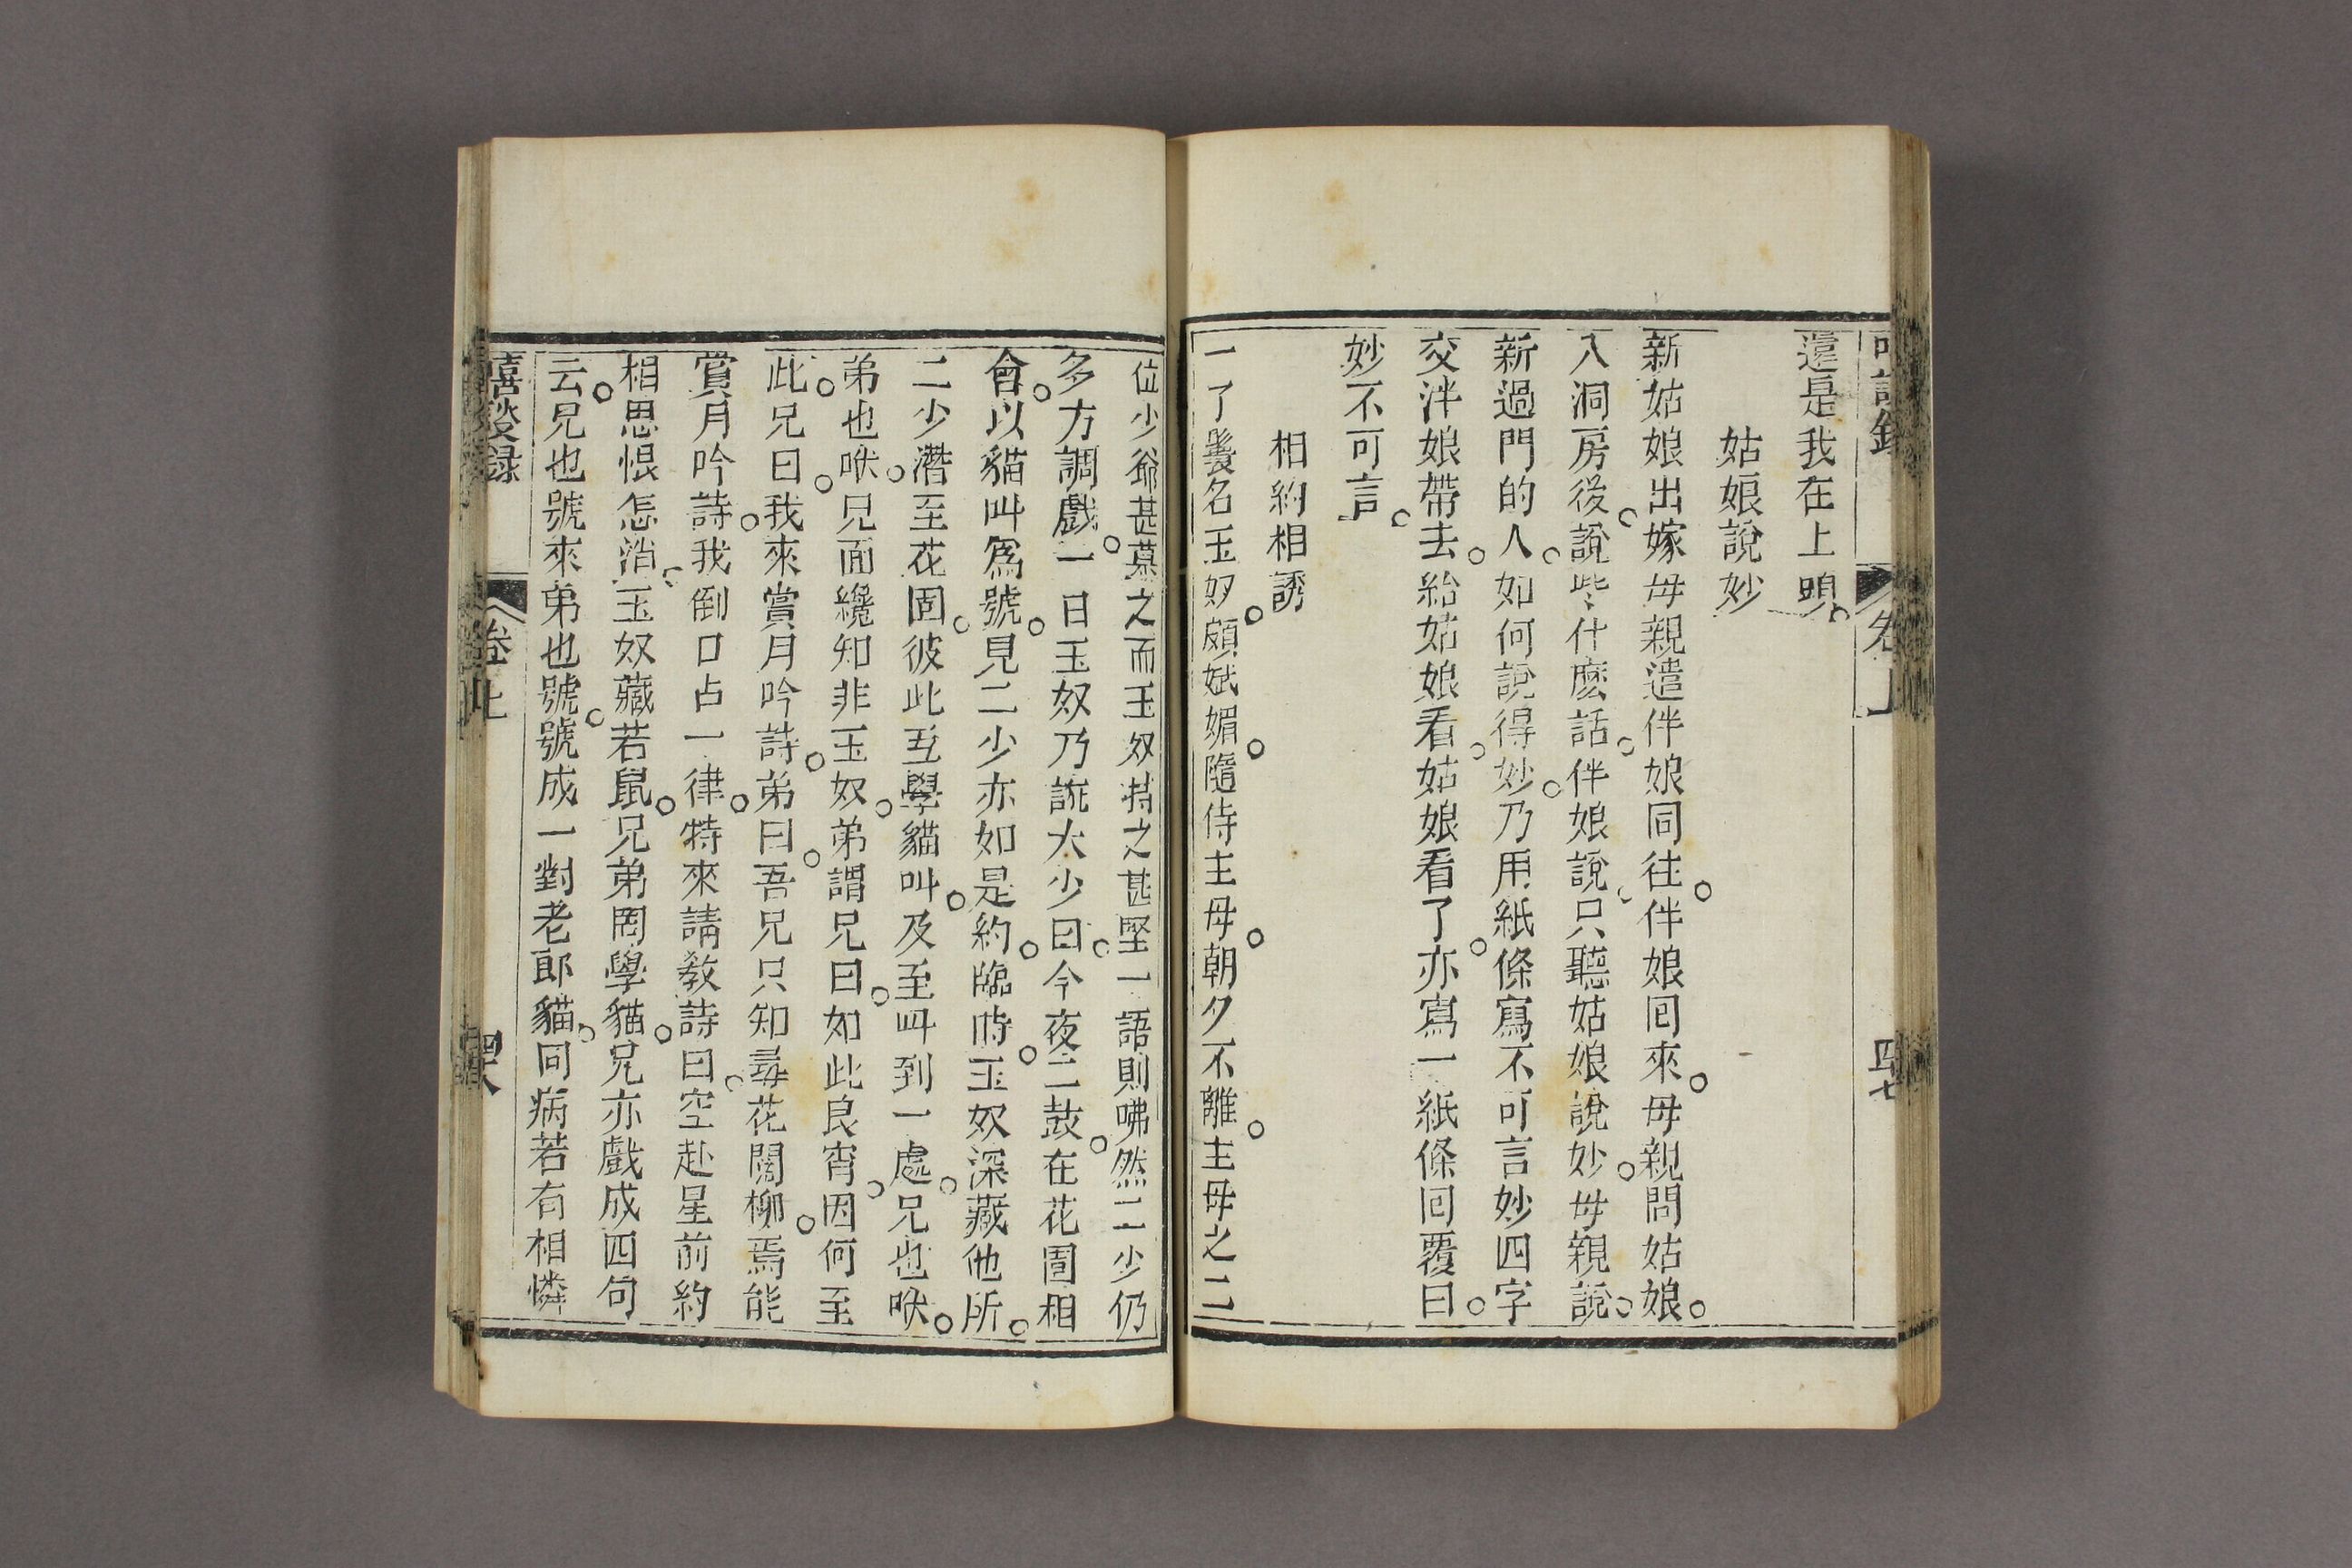 還是我在上頭。
姑娘說妙
新姑娘出嫁母親遣伴娘同往。伴娘囘來。母親問姑娘。
入洞房後。說些什麽話。伴娘說。只聽姑娘說妙。母親說。
新過門的人。如何說得妙。乃用紙條寫不可言妙四字
交泮娘帶去。給姑娘看。姑娘看了。亦寫一紙條囘覆曰。
妙不可言。
相約相誘
一了鬟名玉奴。頗娬媚。隨侍主母。朝夕不離。主母之二
位少爺甚慕之而玉奴持之甚堅一語則咈然二少仍
多方調戲。一日玉奴乃謊大少曰。今夜二鼓。在花園相
會。以貓叫爲號。見二少亦如是約。臨時。玉奴深藏他所。
二少潛至花園。彼此互學貓叫。及至叫到一處。兄也唉。
弟也唉。兄面纔知非玉奴。弟謂兄曰。如此良宵。因何至
此。兄曰。我來賞月吟詩。弟曰。吾兄只知尋花闊柳。焉能
賞月吟詩。我倒口占一律。特來請教詩曰。空赴星前約
相思恨怎消。玉奴藏若鼠。兄弟罔學貓。兄亦戲成四句
云。兄也號來弟也號。號成一對老郎貓。同病若有相憐
嘻談録
卷上
四八
卷上
四七